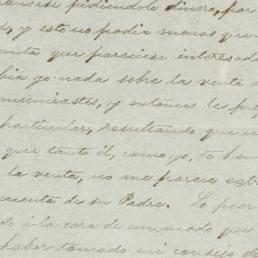 causase pidiéndole dinero, por
y esto no podia menos que
que pareciese interesado
bia yo nada sobre la venta
nunciastes, y entonces le pre
particular, resultando que
que tanto él, como yo, te
la venta, no me parece
cuenta de su Padre. Lo peor
de á la cara de un modo que
haber tomado mi consejo de